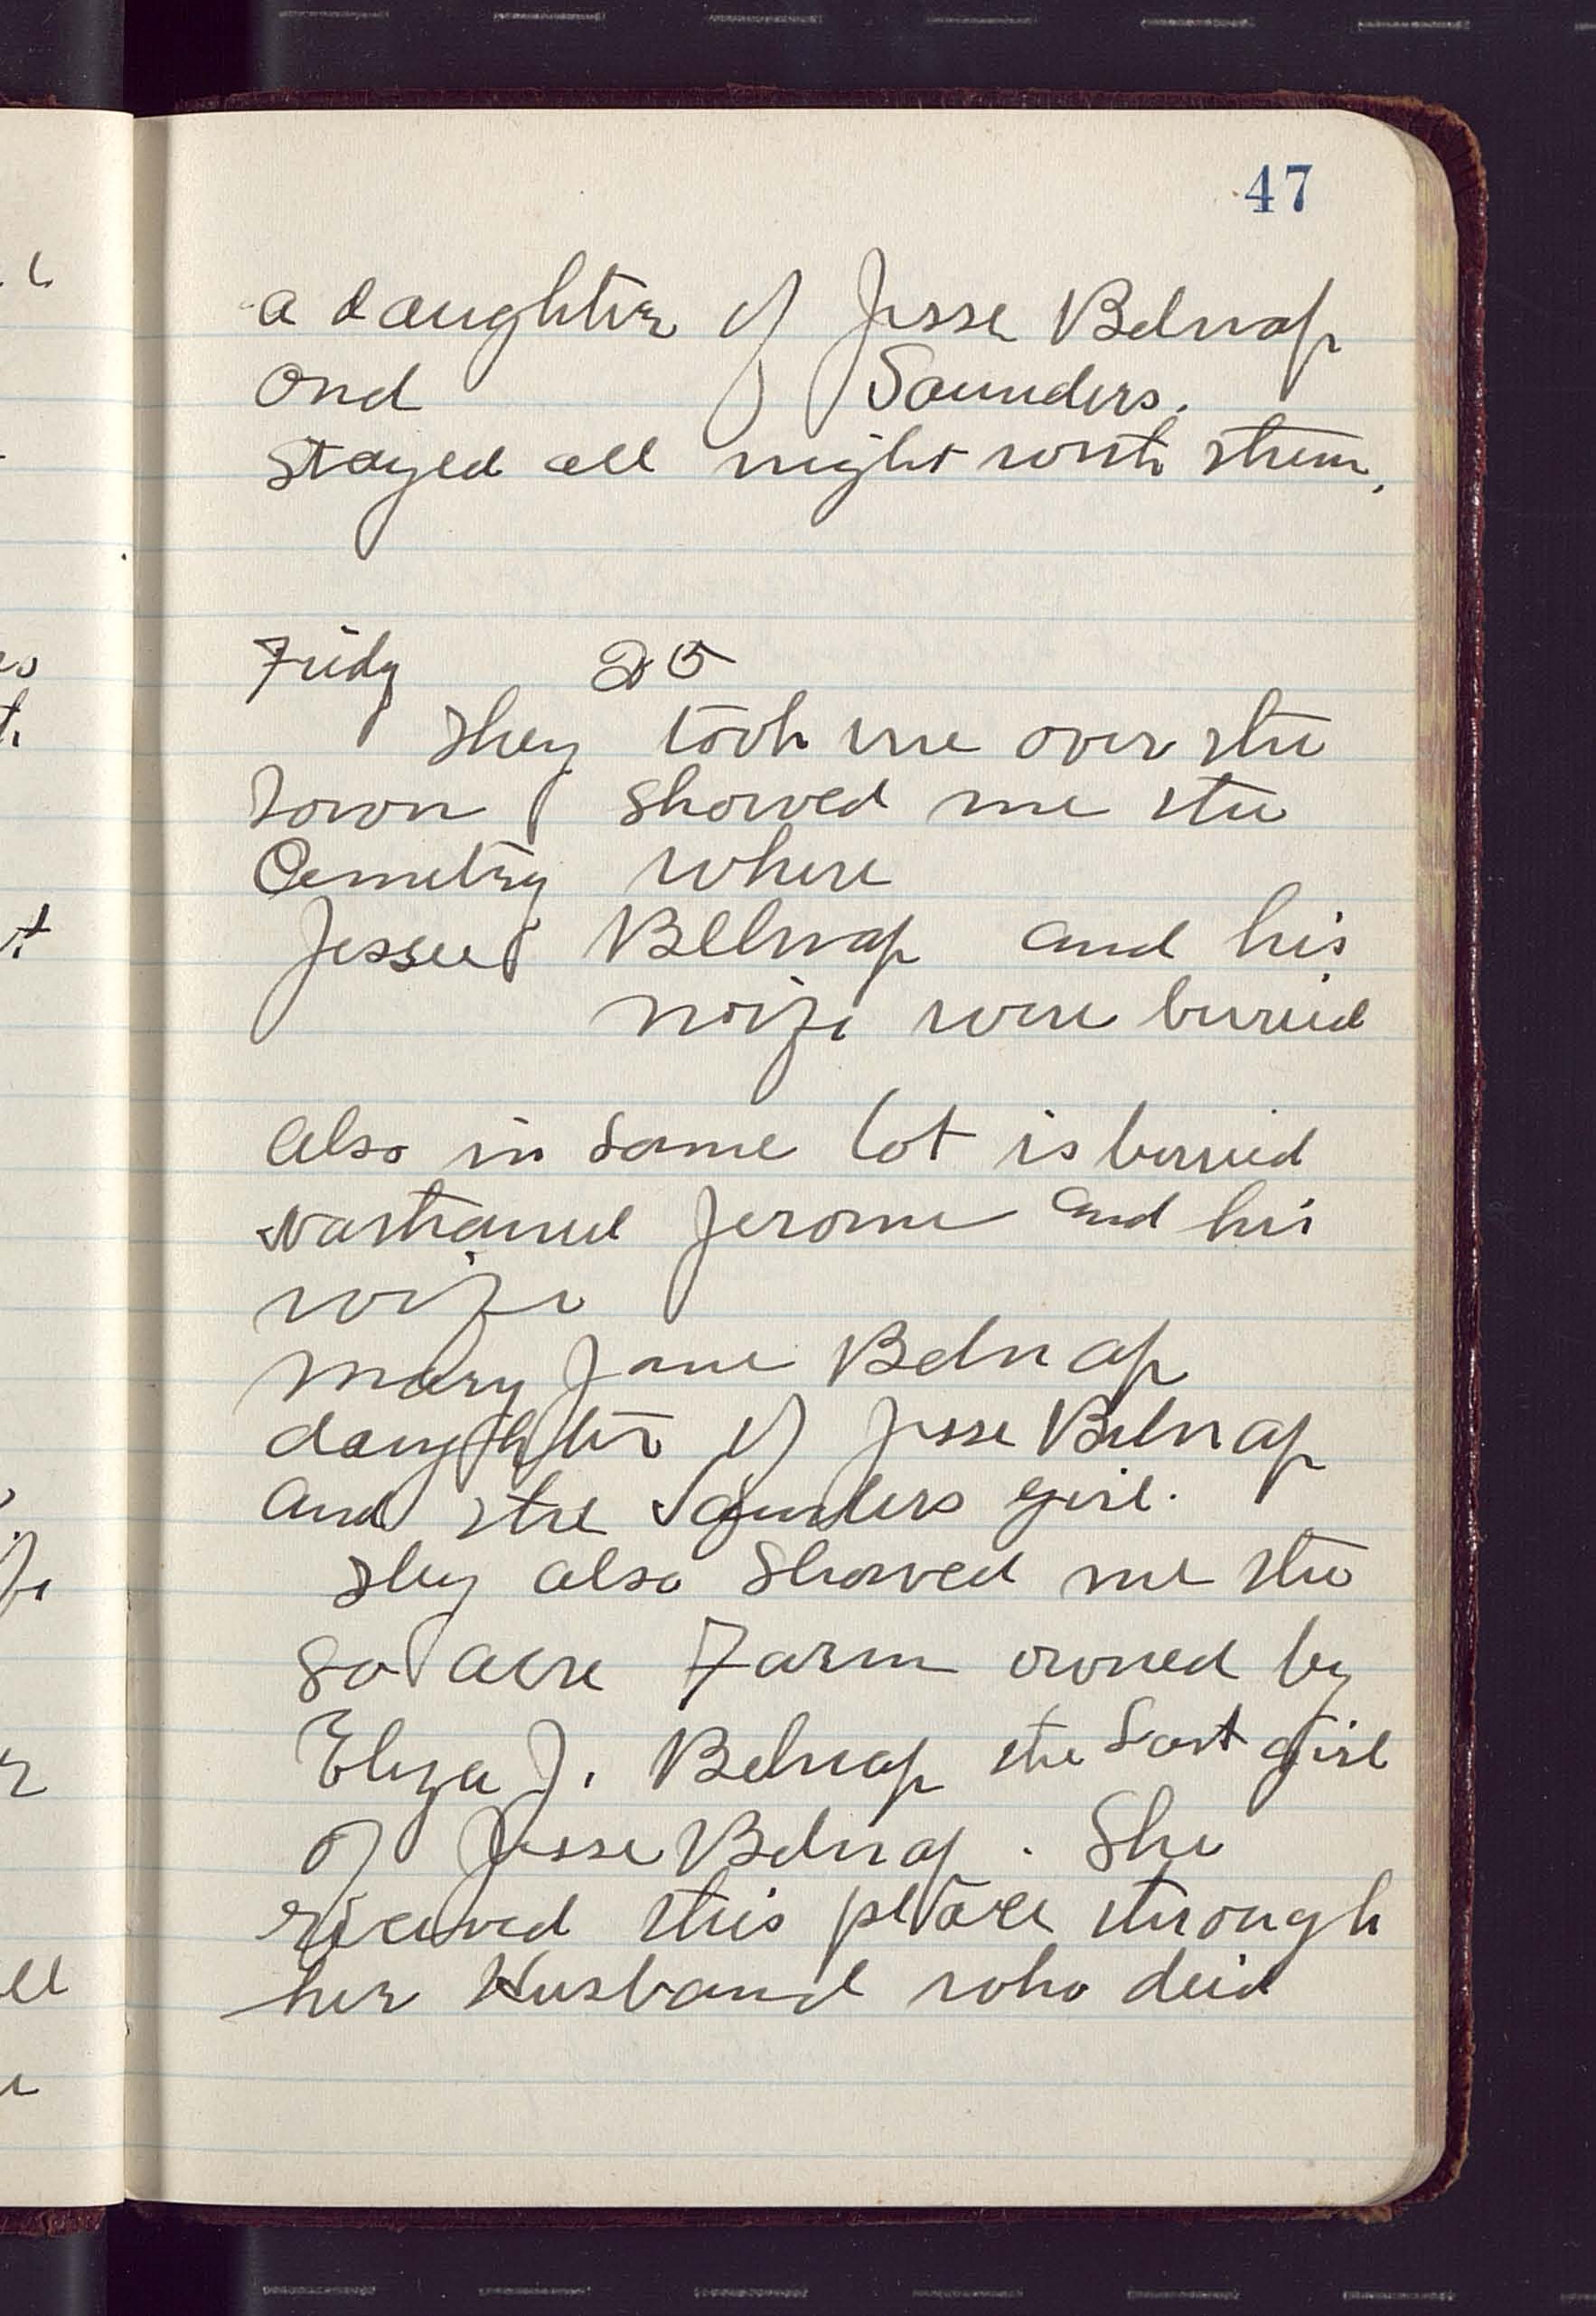 47
a daughter of Jesse Belnap
and Saunders.
stayed all night with them.
Fridy 25
They took me over the
Town showed me the
Cemetry where
Jessee Belnap and his
wife were burried
also in same lot is burried
Nathanuel Jerome and his
wife
Mary Jane Belnap
daughter of Jesse Belnap
and the Saunders girl.
They also showed me the
80 acre Farm owned by
Eliza J. Belnap the Last girl
of Jesse Belnap. She
received this place through
her Husband who deid